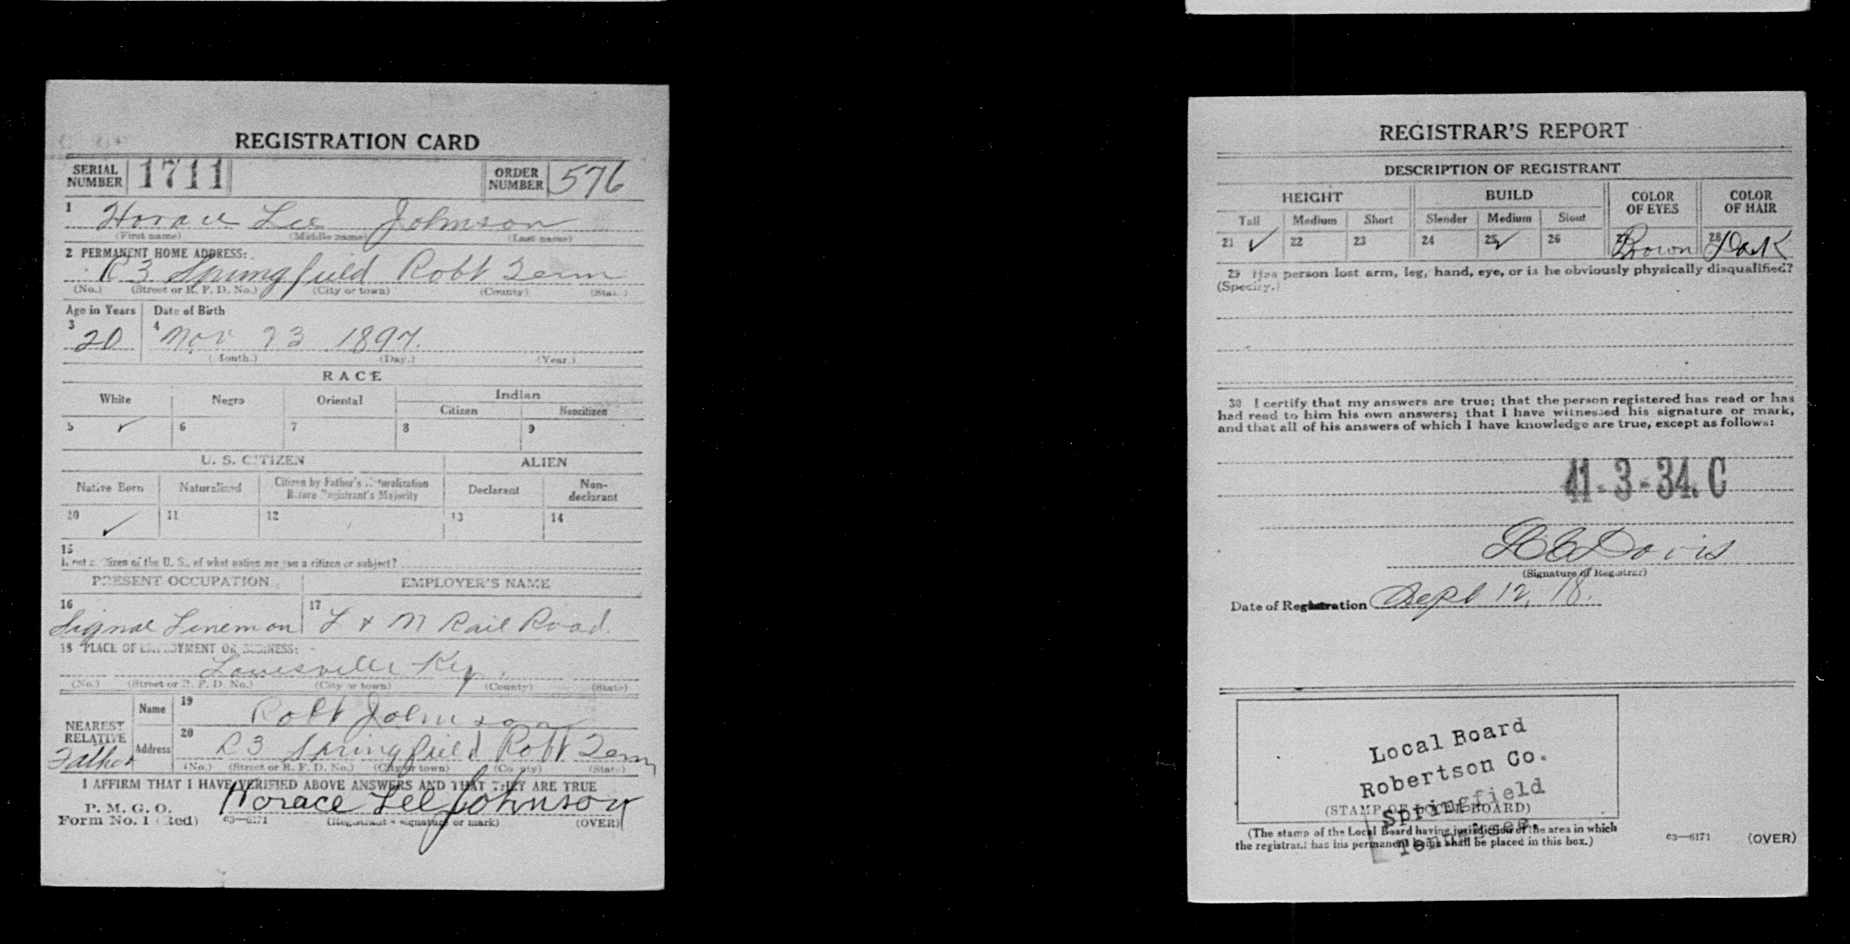 REGISTRATION CARD
SERIAL NUMBER 1711 ORDER NUMBER 576
1 Horace Lee Johnson
(First name) (Middle name) (Last name)
2 PERMANENT HOME ADDRESS:
R 3 Springfield Robt Tenn
(No.) (Street or R. F. D. No.) (City or town) (County) (State)
Age in Years Date of Birth
3 20 4 Nov 23 1897.
(Month.) (Day.) (Year.)
RACE
White Negro Oriental Indian
Citizen Noncitizen
5 ✓ 6 7 8 9
U. S. CITIZEN ALIEN
Native Born Naturalized Citizen by Father's Naturalization Before Registrant's Majority Declarant Non-declarant
10 ✓ 11 12 13 14
15
If not a citizen of the U. S., of what nation are you a citizen or subject?
PRESENT OCCUPATION EMPLOYER'S NAME
16 Signal Lineman 17 L & N Rail Road.
18 PLACE OF EMPLOYMENT OR BUSINESS:
Louisville Ky.
(No.) (Street or R. F. D. No.) (City or town) (County) (State)
NEAREST RELATIVE Father
Name 19 Robt Johnson
Address 20 R 3 Springfield Robt Tenn
(No.) (Street or R. F. D. No.) (City or town) (County) (State)
I AFFIRM THAT I HAVE VERIFIED ABOVE ANSWERS AND THAT THEY ARE TRUE
P. M. G. O.
Form No. 1 (Red) 03—6171 Horace Lee Johnson
(Registrant's signature or mark) (OVER)
REGISTRAR'S REPORT
DESCRIPTION OF REGISTRANT
HEIGHT BUILD COLOR OF EYES COLOR OF HAIR
Tall Medium Short Slender Medium Stout
21 ✓ 22 23 24 25 ✓ 26 27 Brown 28 Dark
29 Has person lost arm, leg, hand, eye, or is he obviously physically disqualified?
(Specify.)
30 I certify that my answers are true; that the person registered has read or has
had read to him his own answers; that I have witnessed his signature or mark,
and that all of his answers of which I have knowledge are true, except as follows:
41-3-34. C
Davis
(Signature of Registrar)
Date of Registration Sept 12, 18.
Local Board
Robertson Co.
Springfield
Tennessee.
(STAMP OF LOCAL BOARD)
(The stamp of the Local Board having jurisdiction of the area in which
the registrant has his permanent home shall be placed in this box.)
03—6171 (OVER)